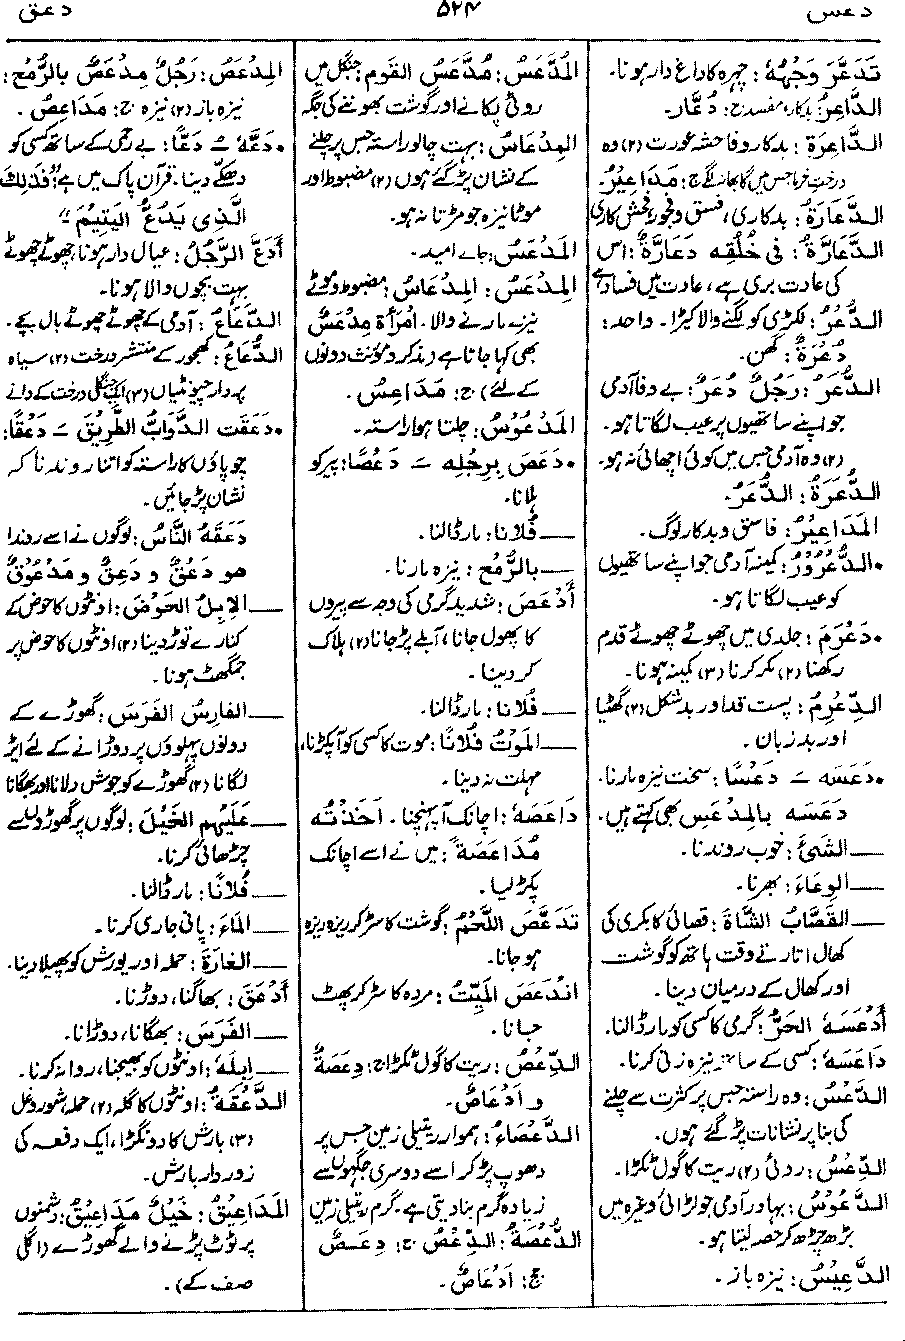 دعس ۵۲۴ دعق
تَدَعَّرَ وَجْهُهُ: چہرہ کا داغ دار ہونا۔
الدَّاعِرُ: بدکار، مفسد ج: دُعَّار۔
الدَّاعِرَة: بدکار و فاحشہ عورت (۲) وہ
درخت خرما جس میں گابھا نہ لگے ج: مَدَاعِيْرُ۔
الدَّعَارَةُ: بدکاری، فسق و فجور، فحش کاری
الدَّعَارَّةُ: فى خُلُقِه دَعَارَّةٌ: اس
کی عادت بری ہے، عادت میں فساد ہے
الدُّعَرُ: لکڑی کو لگنے والا کیڑا۔ واحد:
دُعَرَةٌ: گھن۔
الدُّعَرُ: رَجُلٌ دُعَرٌ: بے وفا آدمی
جو اپنے ساتھیوں پر عیب لگاتا ہو۔
(۲) وہ آدمی جس میں کوئی اچھائی نہ ہو۔
الدُّعَرَةُ: الدُّعَرُ۔
المَدَاعِيْرُ: فاسق و بدکار لوگ۔
•الدُّعْرُوْرُ: کمینہ آدمی جو اپنے ساتھیوں
کو عیب لگاتا ہو۔
•دَعْرَمَ: جلدی میں چھوٹے چھوٹے قدم
رکھنا (۲) مکر کرنا (۳) کمینہ ہونا۔
الدِّعْرِمُ: پست قد اور بدشکل (۲) گھٹیا
اور بد زبان۔
•دَعَسَه ـَ دَعْسًا: سخت نیزہ مارنا۔
دَعَسَه بالمِدْعَسِ بھی کہتے ہیں۔
ـــ الشَّئَ: خوب روندنا۔
ـــ الوِعَاءَ: بھرنا۔
ـــ القَصَّابُ الشَّاةَ: قصائی کا بکری کی
کھال اتارتے وقت ہاتھ کو گوشت
اور کھال کے درمیان دینا۔
أَدْعَسَهُ الحَرُّ: گرمی کا کسی کو مار ڈالنا۔
دَاعَسَهُ: کسی کے ساتھ نیزہ زنی کرنا۔
الدَّعْسُ: وہ راستہ جس پر کثرت سے چلنے
کی بنا پر نشانات پڑ گئے ہوں۔
الدِّعْسُ: روئی (۲) ریت کا گول ٹکڑا۔
الدَّعُوْسُ: بہادر آدمی جو لڑائی وغیرہ میں
بڑھ چڑھ کر حصہ لیتا ہو۔
الدَّعِيْسُ: نیزہ باز۔
المُدَّعَسُ: مُدَّعَسُ القَوم: جنگل میں
روٹی پکانے اور گوشت بھوننے کی جگہ
المِدْعَاسُ: بہت چالو راستہ جس پر چلنے
کے نشان پڑ گئے ہوں (۲) مضبوط اور
موٹا نیزہ جو مڑتا نہ ہو۔
المَدْعَسُ: جاے امید۔
المِدْعَسُ: المِدْعَاسُ: مضبوط و موٹے
نیزے مارنے والا۔ امْرَأة مِدْعَسٌ
بھی کہا جاتا ہے (مذکر و مؤنث دونوں
کے لئے) ج: مَدَاعِسُ۔
المَدْعُوْسُ: چلتا ہوا راستہ۔
•دَعَصَ بِرِجْلِه ـَ دَعْصًا: پیر کو
ہلانا۔
ـــ فُلَانا: مار ڈالنا۔
ـــ بالرُّمْحِ: نیزہ مارنا۔
أَدْعَصَ: شدید گرمی کی وجہ سے پیروں
کا پھول جانا، آبلے پڑ جانا (۲) ہلاک
کر دینا۔
ـــ فُلَانا: مار ڈالنا۔
ـــ المَوْتُ فُلَانًا: موت کا کسی کو آ پکڑنا،
مہلت نہ دینا۔
دَاعَصَهُ: اچانک آ پہنچنا۔ اَخَذْتُه
مُدَاعَصَةً: میں نے اسے اچانک
پکڑ لیا۔
تَدَعَّصَ اللَّحْمُ: گوشت کا سڑ کر ریزہ ریزہ
ہو جانا۔
اِنْدَعَصَ المَيِّتُ: مردہ کا سڑ کر پھٹ
جانا۔
الدِّعْصُ: ریت کا گول ٹکڑا ج: دِعَصَةٌ
و اَدْعَاصٌ۔
الدَّعْصَاءُ: ہموار ریتیلی زمین جس پر
دھوپ پڑ کر اسے دوسری جگہوں سے
زیادہ گرم بنا دیتی ہے۔ گرم ریتیلی زمین
الدِّعْصَةُ: الدِّعْصُ ج: دِعَصٌ
جج: اَدْعَاصٌ۔
المِدْعَصُ: رَجُلٌ مِدْعَصٌ بالرُّمْحِ:
نیزہ باز (۲) نیزہ ج: مَدَاعِصُ۔
•دَعَّهُ ـُ دَعًّا: بے رحمی کے ساتھ کسی کو
دھکّے دینا۔ قرآن پاک میں ہے: "فَذٰلِكَ
الَّذِى يَدُعُّ اليَتِيْمَ"
أَدَعَّ الرَّجُلُ: عیال دار ہونا، چھوٹے چھوٹے
بہت بچوں والا ہونا۔
الدَّعَاعُ: آدمی کے چھوٹے چھوٹے بال بچے۔
الدُّعَاعُ: کھجور کے منتشر درخت (۲) سیاہ
پر دار چیونٹیاں (۳) ایک جنگلی درخت کے دانے
•دَعَقَت الدَّوَابُّ الطَّرِيْقَ ـَ دَعْقًا:
چوپاؤں کا راستہ کو اتنا روندنا کہ
نشان پڑ جائیں۔
دَعَقَهُ النَّاسُ: لوگوں نے اسے روندا
هو دَعْقٌ و دَعِقٌ و مَدْعُوْقٌ
ـــ الاِبِلُ الحَوْضَ: اونٹوں کا حوض کے
کنارے توڑ دینا (۲) اونٹوں کا حوض پر
جمگھٹ ہونا۔
ـــ الفَارِسُ الفَرَسَ: گھوڑے کے
دونوں پہلوؤں پر دوڑانے کے لئے ایڑ
لگانا (۲) گھوڑے کو جوش دلانا اور بھگانا
ـــ عَلَيْهِم الخَيْلَ: لوگوں پر گھوڑ دَل سے
چڑھائی کرنا۔
ـــ فُلَانًا: مار ڈالنا۔
ـــ المَاءَ: پانی جاری کرنا۔
ـــ الغَارَةَ: حملہ اور یورش کو پھیلا دینا۔
أَدْعَقَ: بھاگنا، دوڑنا۔
ـــ الفَرَسَ: بھگانا، دوڑانا۔
ـــ اِبِلَهُ: اونٹوں کو بھیجنا، روانہ کرنا۔
الدَّعْقَةُ: اونٹوں کا گلہ (۲) حملہ، شور و غل
(۳) بارش کا دونگڑا، ایک دفعہ کی
زور دار بارش۔
المَدَاعِيْقُ: خَيْلٌ مَدَاعِيْقُ: دشمنوں
پر ٹوٹ پڑنے والے گھوڑے (اگلی
صف کے)۔